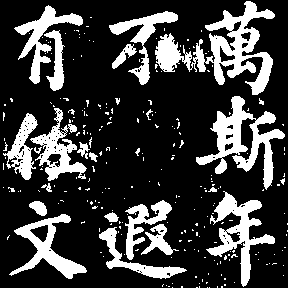 萬斯年
不遐
有佐文